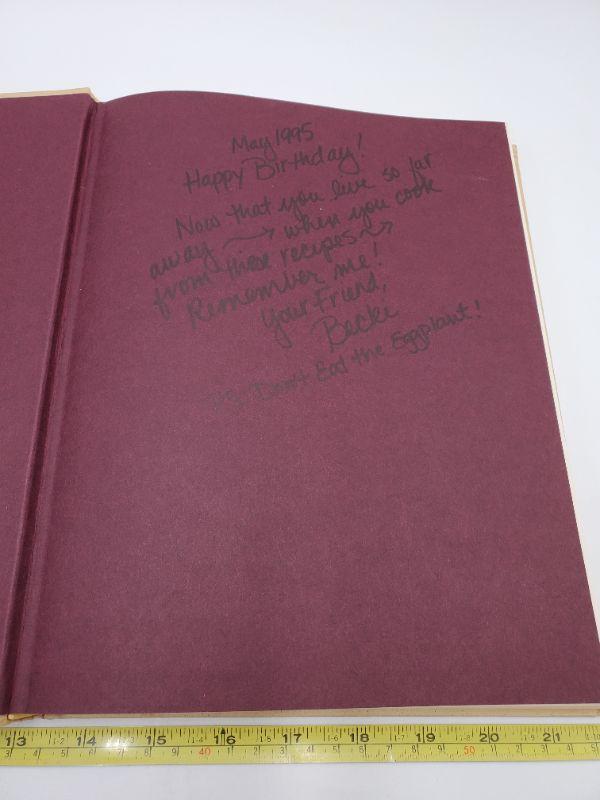 May 1995
Happy Birthday!
Now that you live so far
away → when you cook
from these recipes →
Remember me!
Your Friend,
Becki
P.S. Don't Eat the Eggplant!
13 14 15 16 17 18 19 20 21
40 50